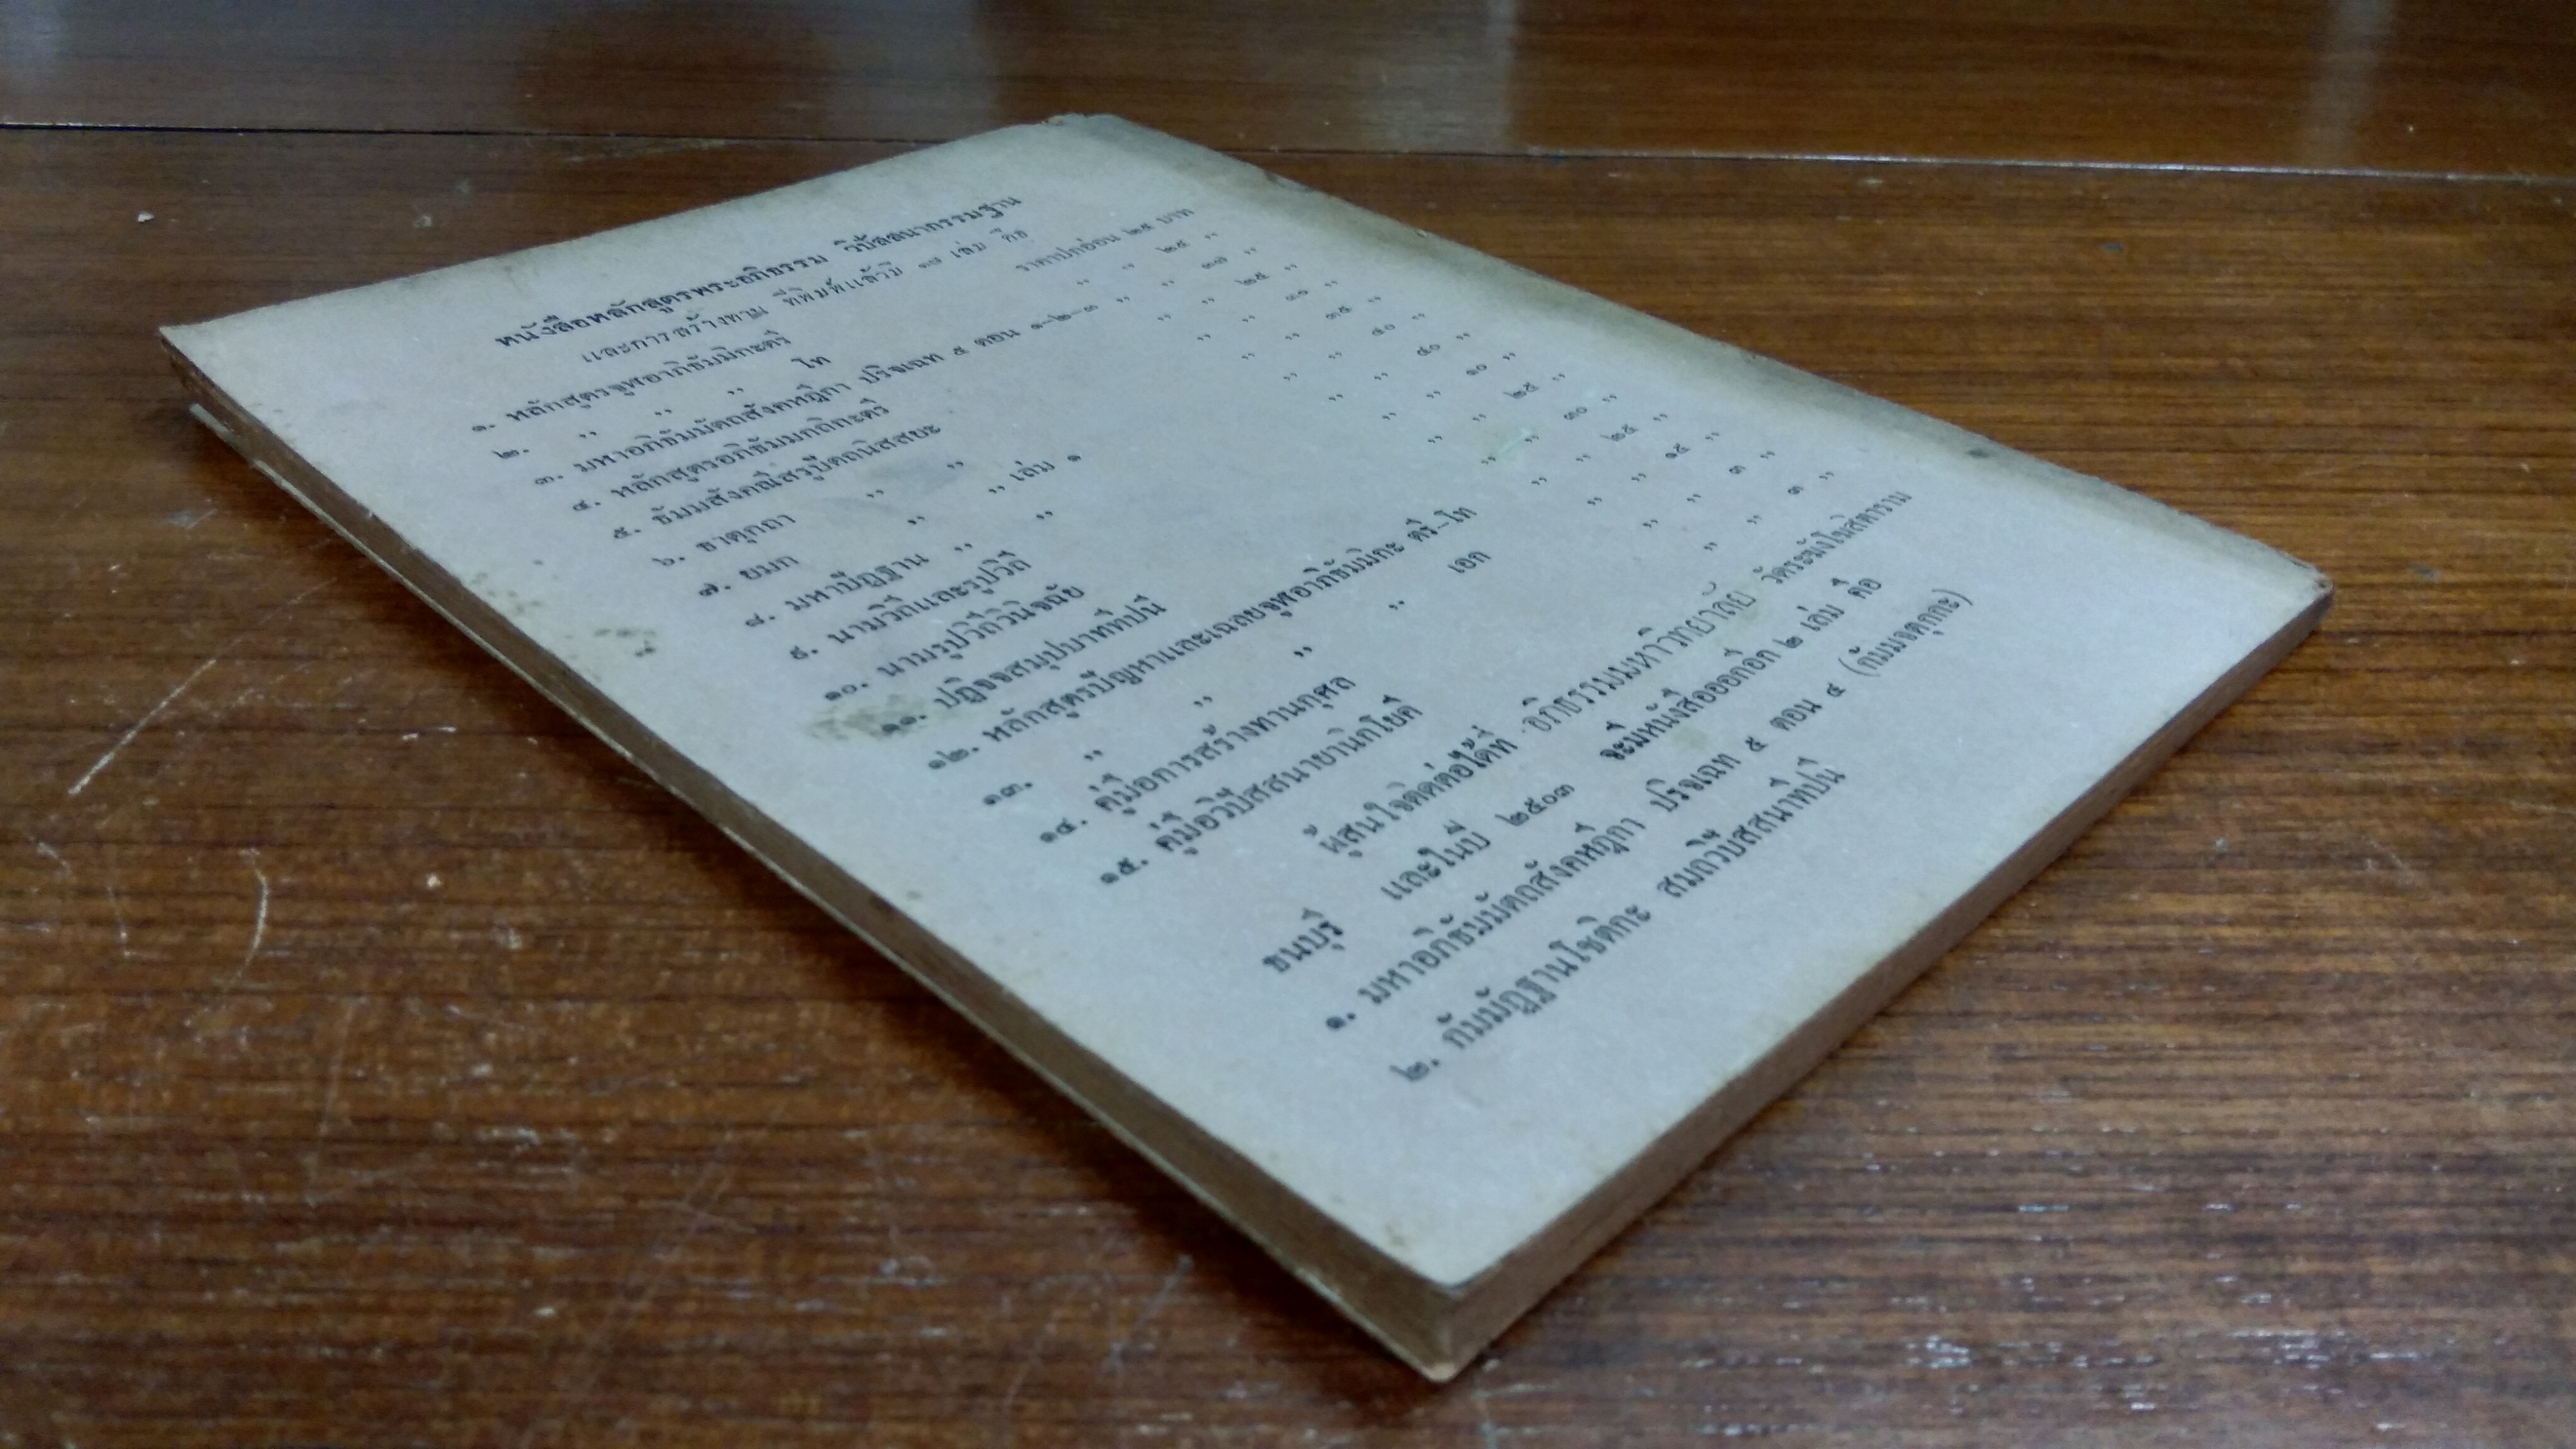 หนังสือหลักสูตรพระอภิธรรม วิปัสสนากรรมฐาน
และการสร้างทาน ที่พิมพ์แล้วมี ๑๗ เล่ม คือ
๑. หลักสูตรจูฬอาภิธัมมิกะตรี ราคาปกอ่อน ๒๕ บาท
๒. ,, ,, โท ,, ,, ๒๕ ,,
๓. มหาอภิธัมมัตถสังคหฎีกา ปริจเฉท ๕ ตอน ๑-๒-๓ ,, ,, ๓๗ ,,
๔. หลักสูตรอภิธัมมกถิกะตรี ,, ,, ๒๕ ,,
๕. ธัมมสังคณีสรูปัตถนิสสยะ ,, ,, ๓๐ ,,
๖. ธาตุกถา ,, ,, ,, ,, ๓๕ ,,
๗. ยมก ,, ,, เล่ม ๑ ,, ,, ๔๐ ,,
๘. มหาปัฏฐาน ,, ,, ,, ,, ๔๐ ,,
๙. นามวิถีและรูปวิถี ,, ,, ๑๐ ,,
๑๐. นามรูปวิถีวินิจฉัย ,, ,, ๒๕ ,,
๑๑. ปฏิจจสมุปบาททีปนี ,, ,, ๓๐ ,,
๑๒. หลักสูตรปัญหาและเฉลยจูฬอาภิธัมมิกะ ตรี-โท ,, ,, ๒๕ ,,
๑๓. ,, ,, ,, ,, เอก ,, ,, ๑๕ ,,
๑๔. คู่มือการสร้างทานกุศล ,, ,, ๓ ,,
๑๕. คู่มือวิปัสสนายานิกโยคี ,, ,, ๓ ,,
ผู้สนใจติดต่อได้ที่ อภิธรรมมหาวิทยาลัย วัดระฆังโฆสิตาราม
ธนบุรี และในปี ๒๕๐๓ จะมีหนังสือออกอีก ๒ เล่ม คือ
๑. มหาอภิธัมมัตถสังคหฎีกา ปริจเฉท ๕ ตอน ๔ (กัมมจตุกกะ)
๒. กัมมัฏฐานโชติกะ สมถวิปัสสนาทีปนี